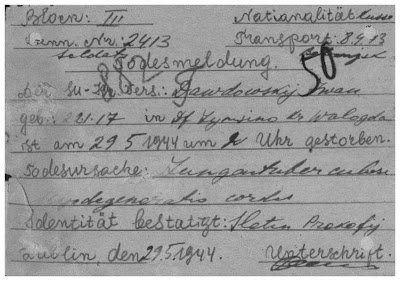 Block: III Nationalität Russe
Kenn. Nr.: 2413 Transport: 8.4.13
Soldat
Todesmeldung. 50
Der Su-Kr. Vers.: Dawdowskij Iwan
geb.: 2.21.17 in Df. Lymsino er Wologda
ist am 29.5.1944 um 2 Uhr gestorben.
Todesursache: Lungentuberculose
degeneratio cordis
Identität bestätigt: Slotin Prokofij
Lublin, den 29.5.1944. Unterschrift.